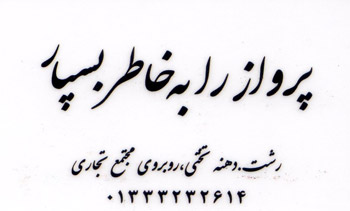 پرواز را به خاطر بسپار
رشت.دهنه تختی،روبروی مجتمع تجاری
۰۱۳۳۳۲۳۲۶۱۴